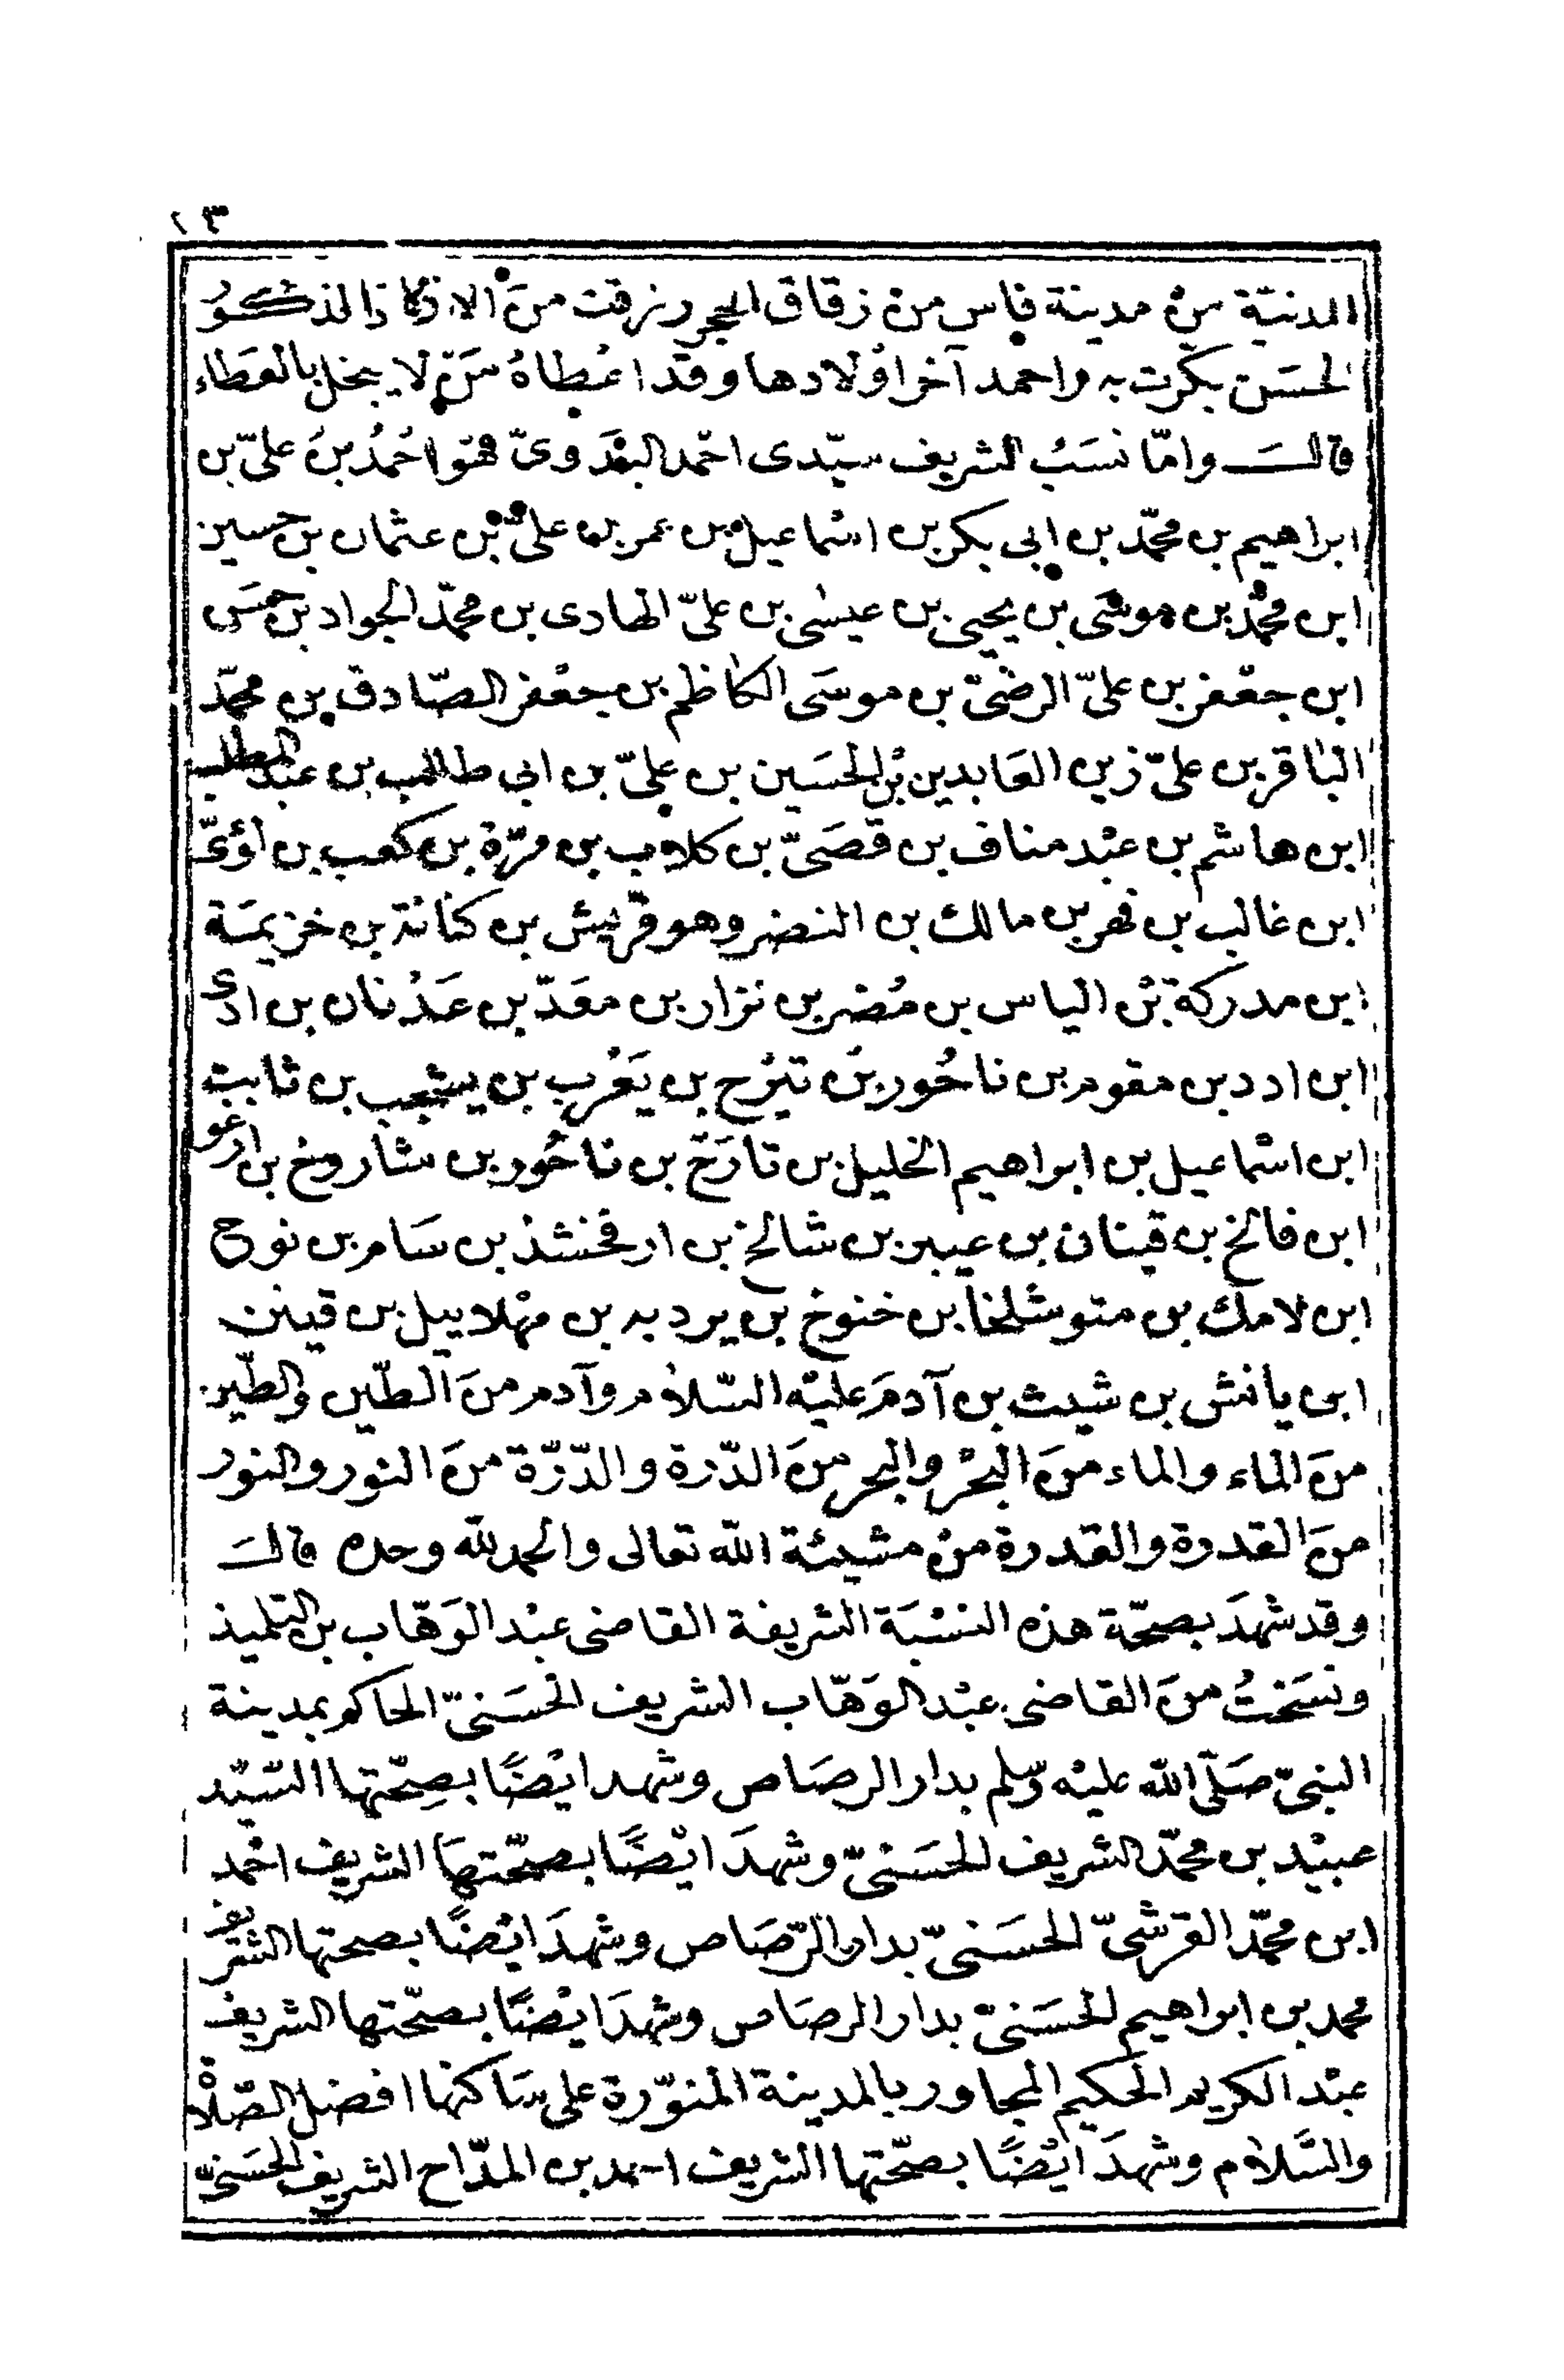 ١٣
المدنيّة من مدينة فاس من زقاق الحجر ورزقت من الاولاد الذكور
الحسَن بكّرت به واحمد آخر اوْلادها وقد اعْطاهُ مَنْ لا يبخل بالعَطاء
قالَ وامّا نسَبُ الشريف سيّدى احْمد البدَوىّ فهَو احْمدُ بنُ علىّ بن
ابراهيم بن محمّد بن ابى بكر بن اسْماعيل بن عمر بن علىّ بن عثمان بن حسين
ابن محمّد بن موسَى بن يحيى بن عيسٰى بن علىّ الهادى بن محمّد الجواد بن حسَن
ابن جعْفر بن علىّ الرضىّ بن موسَى الكاظم بن جعْفر الصّادق بن محمّد
الباقر بن علىّ زين العَابدين بْن الحسَين بن علىّ بن ابى طالب بن عبْد المطلب
ابن هاشم بن عبْد مناف بن قصَىّ بن كلاب بن مرّة بن كعب بن لؤىّ
ابن غالب بن فهر بن مالك بن النضر وهو قريْش بن كنانة بن خزيمَة
ابن مدركة بْن الياس بن مُضر بن نزار بن معَدّ بن عَدْنان بن ادى
ابن ادد بن مقوم بن ناحُور بن تيَرْح بن يَعْرب بن يشجب بن ثابت
ابن اسْماعيل بن ابراهيم الخليل بن تارَخ بن ناحُور بن ساروخ بن ارعو
ابن فالخ بن قينان بن عيبر بن شالخ بن ارفخشذ بن سَام بن نوح
ابن لامك بن متوشلخا بن خنوخ بن يرد به بن مهْلاييل بن قينن
ابن يانش بن شيث بن آدمَ عليْه السّلام وآدم منَ الطّين والطّين
منَ الماء والماء منَ البحْر والبحر منَ الدّرة والدّرّة منَ النور والنور
منَ القدرة والقدرة منْ مشيئة الله تعالى والحمد لله وحده قالَ
وقد شهدَ بصحّة هذه النسْبَة الشريفة القاضى عبْد الوَهّاب بن التلميذ
ونسَختُ منَ القاضى عبْد الوَهّاب الشريف الحسَنىّ الحاكم بمدينة
النبىّ صَلّى الله عليْه وسّلم بدار الرصَاص وشهد ايْضًا بصِحّتها السّيّد
عبيْد بن محمّد الشريف الحسَنىّ وشهدَ ايْضًا بصحّتهَا الشريف احْمد
ابن محمّد القرشىّ الحسَنىّ بدار الرّصَاص وشهدَ ايْضًا بصحتها الشريف
محمد بن ابراهيم الحسَنىّ بدار الرصَاص وشهدَ ايْضًا بصحّتها الشريف
عبْد الكريم الحكيم المجاور بالمدينة المنوّرة على سَاكنها افضل الصّلاةْ
والسَّلام وشهدَ ايْضًا بصحّتها الشريف احمد بن المدّاح الشريف الحسَنىّ